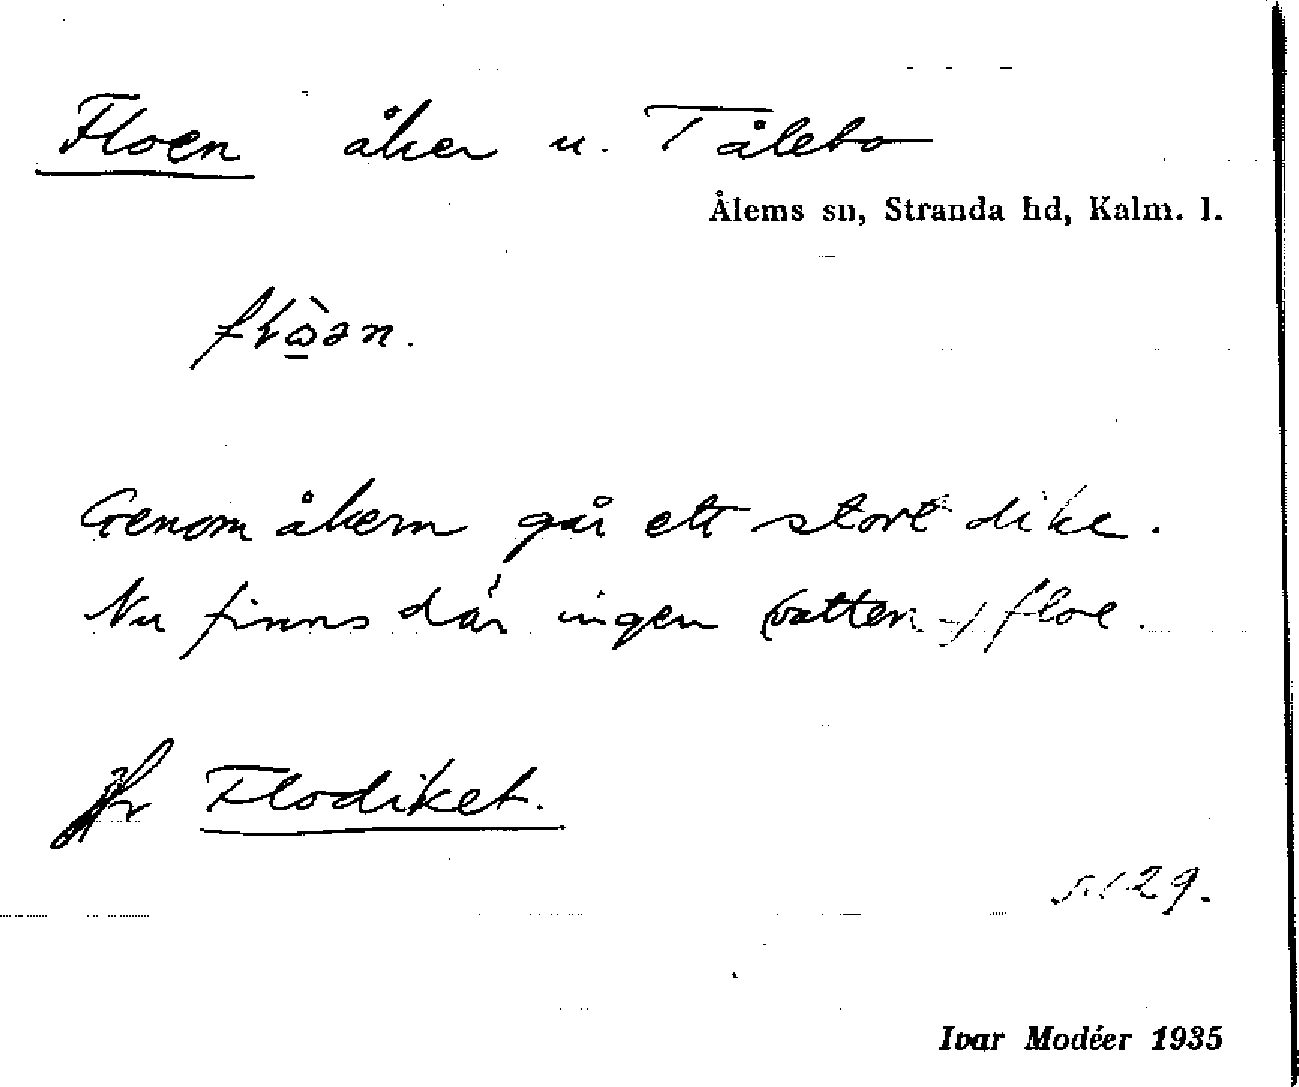 Floen åker u. Tålebo
Ålems sn, Stranda hd, Kalm. l.
Genom åkern går ett stort dike.
Nu finns där ingen (vatten-) floe.
Jfr Flodiket.
129.
Ivar Modéer 1935